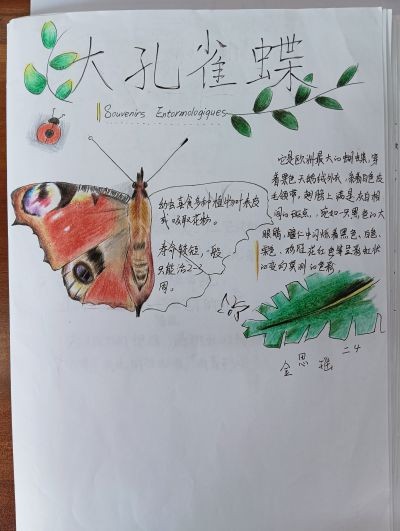 大孔雀蝶
Souvenirs Entomologiques
它是欧洲最大的蝴蝶,穿
着黑色天鹅绒外衣,系着白色皮
毛领带,翅膀上满是灰白相
间的斑点,宛如一只黑色的大
眼睛,瞳仁中闪烁着黑色、白色、
栗色、鸡冠花红色等呈彩虹状
的变幻莫测的色彩。
幼虫喜食多种植物叶表皮
或吸取花粉。
寿命较短,一般
只能活2-3
周。
金思瑶 二4